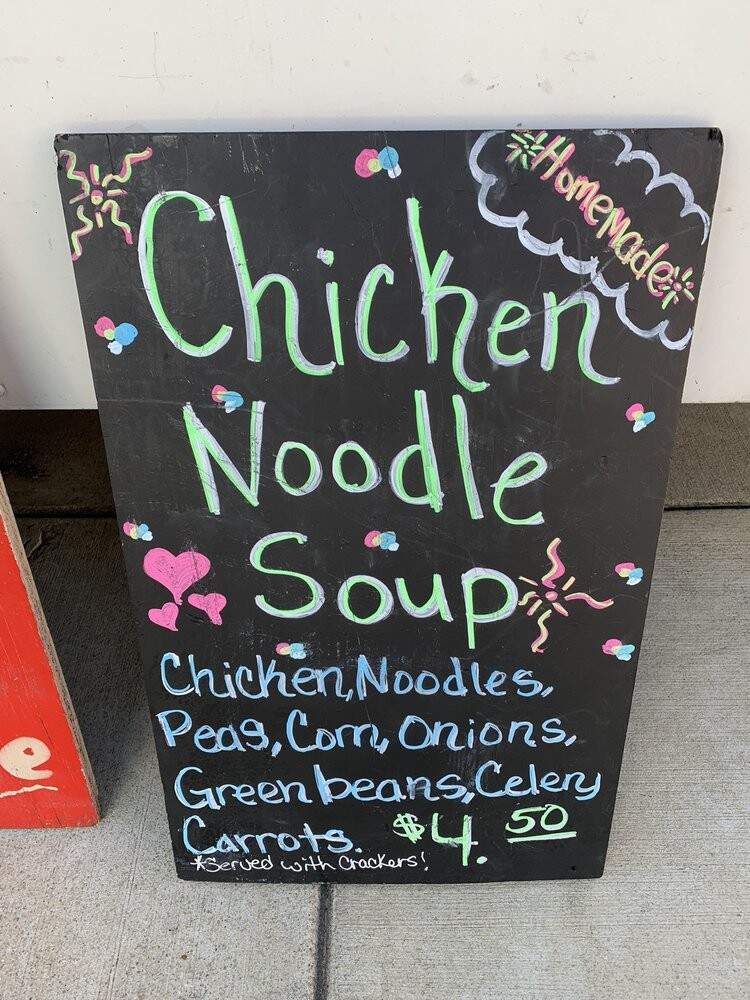 Homemade
Chicken
Noodle
Soup
Chicken, Noodles,
Peas, Corn, Onions,
Green beans, Celery
Carrots. $4.50
*Served with Crackers!
e